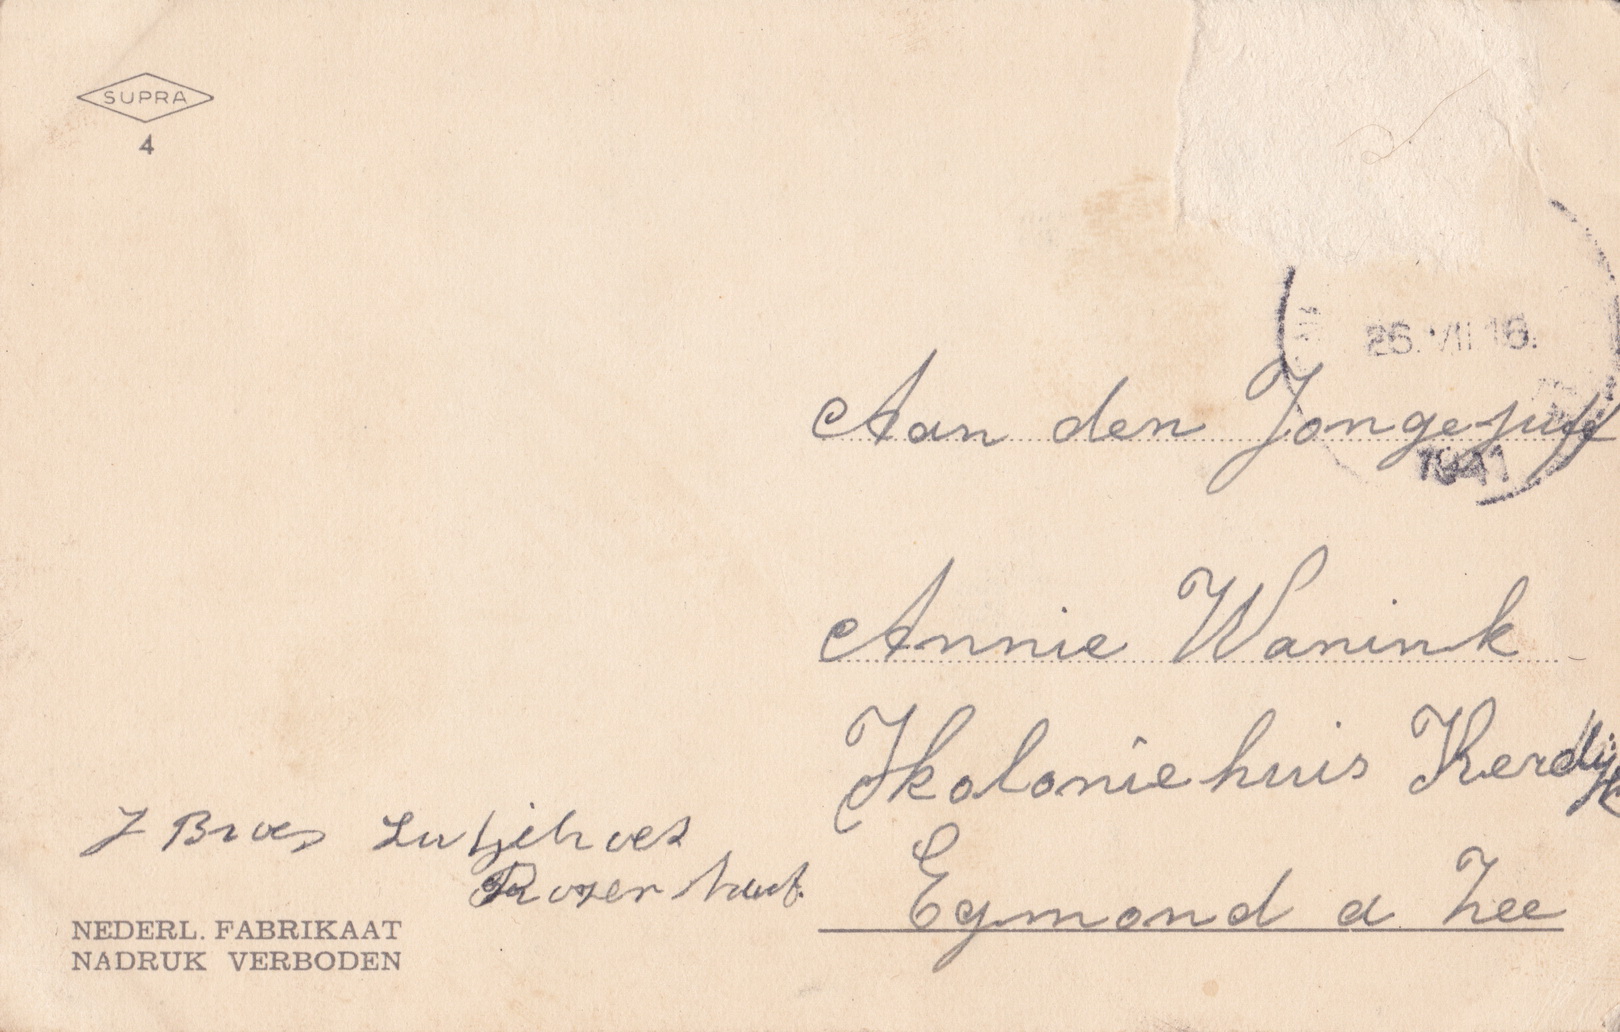 SUPRA
4
26.VII 16.
1941
Aan den Jongejuff
Annie Wanink
Koloniehuis Kerdijk
Egmond a Zee
J Broes Lutjebroek
Rozenhout.
NEDERL. FABRIKAAT
NADRUK VERBODEN